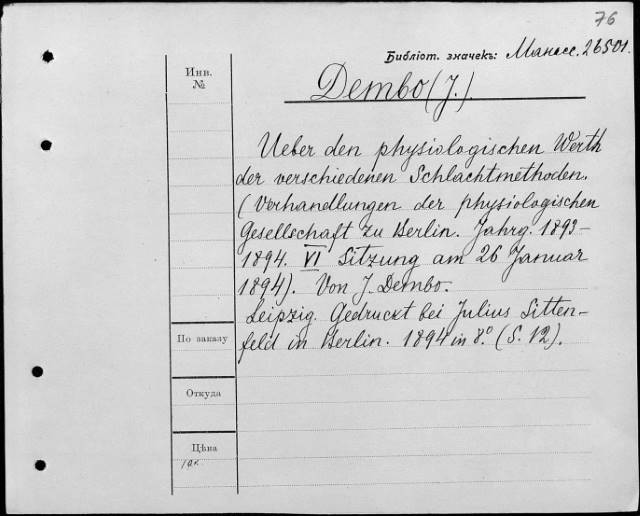 76
Библіот. значекъ: Манасс. 26501.
Инв.
№
Dembo (J.)
Ueber den physiologischen Werth
der verschiedenen Schlachtmethoden.
(Verhandlungen der physiologischen
Gesellschaft zu Berlin. Jahrg. 1893-
1894. VI Sitzung am 26 Januar
1894). Von J. Dembo.
Leipzig. Gedruckt bei Julius Sitten-
feld in Berlin. 1894 in 8.° (S. 12).
По заказу
Откуда
Цѣна